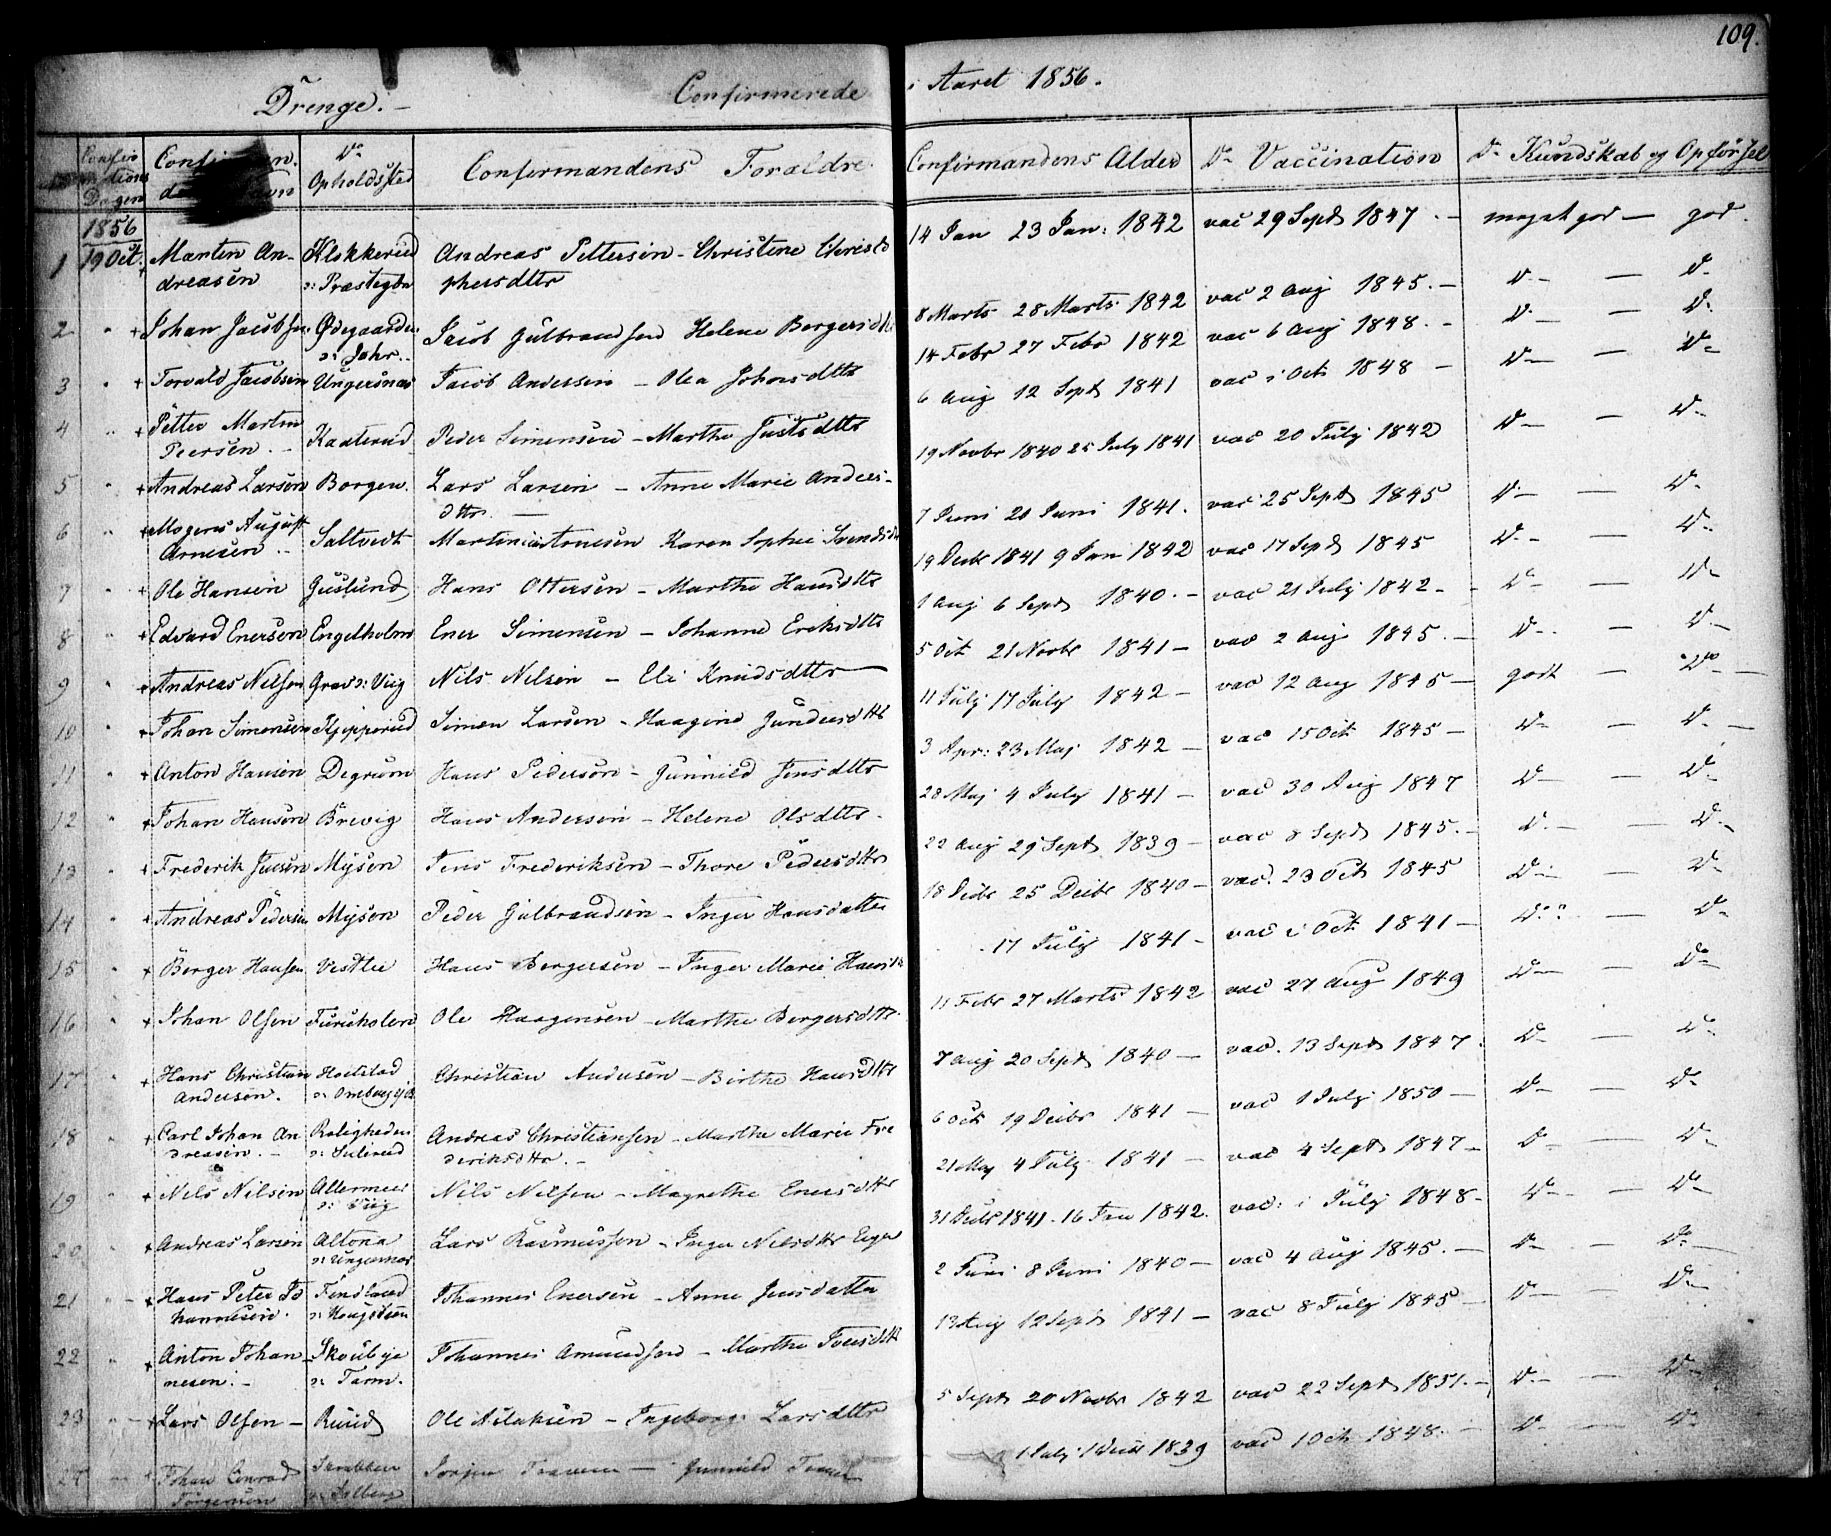 109.
Drenge. — Confirmerede i Aaret 1856.
Confirmandens Forældre Confirmandens Alder Do Vaccination Do Kundskab og Opførsel
Dagen Do Opholdsted
1856
1 19 Oct. + Marten An- Klokkerud Andreas Pettersen - Christine Christo 14 Jan 23 Jan: 1842 vac 29 Sept 1847. — meget god — god.
dreasen phersdtter
2 " + Johan Jacobsen Ødegaarden Jacob Gulbrandsen Helene Borgersdtr 8 Marts 28 Marts 1842 vac 2 Aug 1845. — Do — Do
3 " + Torvald Jacobsen Ungersnæs Jacob Andersen — Olea Johnsdttr 14 Febr 27 Febr 1842 vac 6 Aug 1848. — Do — Do
4 " + Petter Martin Kaaterud Peder Simensen — Marthe Justsdttr 6 Aug 12 Sept 1841 vac i Oct 1848 — Do — Do
Peersen. —
5 " + Andreas Larsen Borgen. Lars Larsen — Anne Marie Anders- 19 Novbr 1840 25 July 1841 vac 20 July 1842 Do — Do
dttr. —
6 " + Mogens August Saltvedt Karen Sophie Svendsdr 7 Juni 20 Juni 1841. vac 25 Sept 1845 Do — Do
Arnesen. —
7 " + Ole Hansen Guslund Hans Ottersen — Marthe Hansdttr 19 Decbr 1841 9 Jan 1842 vac 17 Sept 1845 Do — Do
8 " + Edvard Enersen Engelholm Ener Simensen — Johanne Eriksdttr 1 Aug 6 Sept 1840. — vac 21 July 1842. — Do — Do
9 " + Andreas Nelsen Grav Viig Nils Nelsen — Eli Knudsdttr 5 Oct 21 Novbr 1841 — vac 2 Aug 1845. — Do — Do
10 " + Johan Simensen Kjepperud Simen Larsen — Haagine Gundersdttr 11 July 17 July 1842 — vac 12 Aug 1845 — godt — Do —
11 " + Anton Hansen Degrum Hans Pedersen — Gunnild Jensdttr 3 Apr: 23 Maj 1842 — vac 15 Oct 1845 — Do — Do —
12 " + Johan Hansen Brevig Hans Andersen — Helene Olsdttr. 28 Maj 4 July 1841 — vac 30 Aug 1847 Do — Do
13 " + Frederik Jensen Mysen Jens Frederiksen — Thore Pedersdttr 22 Aug 29 Sept 1839 — vac 8 Sept 1845. — Do — Do
14 " + Andreas Pedersen Mysen Peder Gulbrandsen — Inger Hansdatter 18 Decbr 25 Decbr 1840 — vac. 23 Oct 1845 Do — Do
15 " + Borger Hansen Vestlie Hans Borgersen — Inger Marie Hansdr 17 July 1841 — vac i Oct 1841 — Do — Do
16 " + Johan Olsen Furuholen Ole Haagensen — Marthe Borgersdttr. 11 Febr 27 Marts 1842 vac 27 Aug 1849 Do — Do
17 " + Hans Christian Christian Andersen — Birthe Hansdttr 7 Aug 20 Sept 1840 — vac. 13 Sept 1847. Do — Do
Andersen.
18 " + Carl Johan An Roligheden Andreas Christiansen — Marthe Marie Fre 6 Oct 19 Decbr 1841 — vac 1 July 1850 — Do — Do
dreasen. — deriksdttr. —
19 " + Nels Nilsen Nils Nelsen — Magrethe Enersdttr 21 Maj 4 July 1841 — vac 4 Sept 1847 — Do — Do
20 " + Andreas Larsen Altona Lars Rasmussen — Inger Nilsdttr 31 Decbr 1841. 16 Jan 1842. vac: i July 1848 — Do — Do
Ungersnæs
21 " + Hans Peter Jo Findland Johannes Enersen — Anne Jensdatter 2 Juni 8 Juni 1840 — vac 4 Aug 1845. — Do — Do
hannesen.
22 " + Anton Johan- Skoubye Johannes Amundsen — Marthe Iversdttr 13 Aug 12 Sept 1841 — vac 8 July 1845 — Do — Do
nesen. — Tarm.
23 " + Lars Olsen — Ruud Ole Aslaksen — Ingeborg Larsdttr 5 Sept 20 Novbr 1842 vac 22 Sept 1851. — Do — Do
24 " + Johan Conrad Jørgen — Gunnild 1839 vac 1 Oct 1848. — Do — Do
Jørgensen